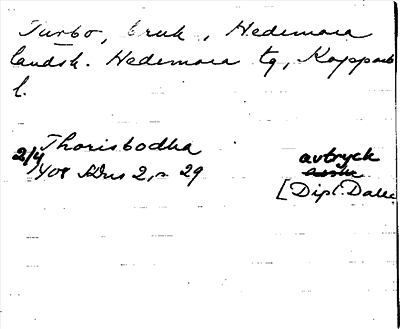 Turbo, bruk, Hedemora
landsk. Hedemora tg, Kopparb
l.
Thorisbodha
2/4 1408 Dus 2, n 29
avtryck
[Dipl. Dalec.